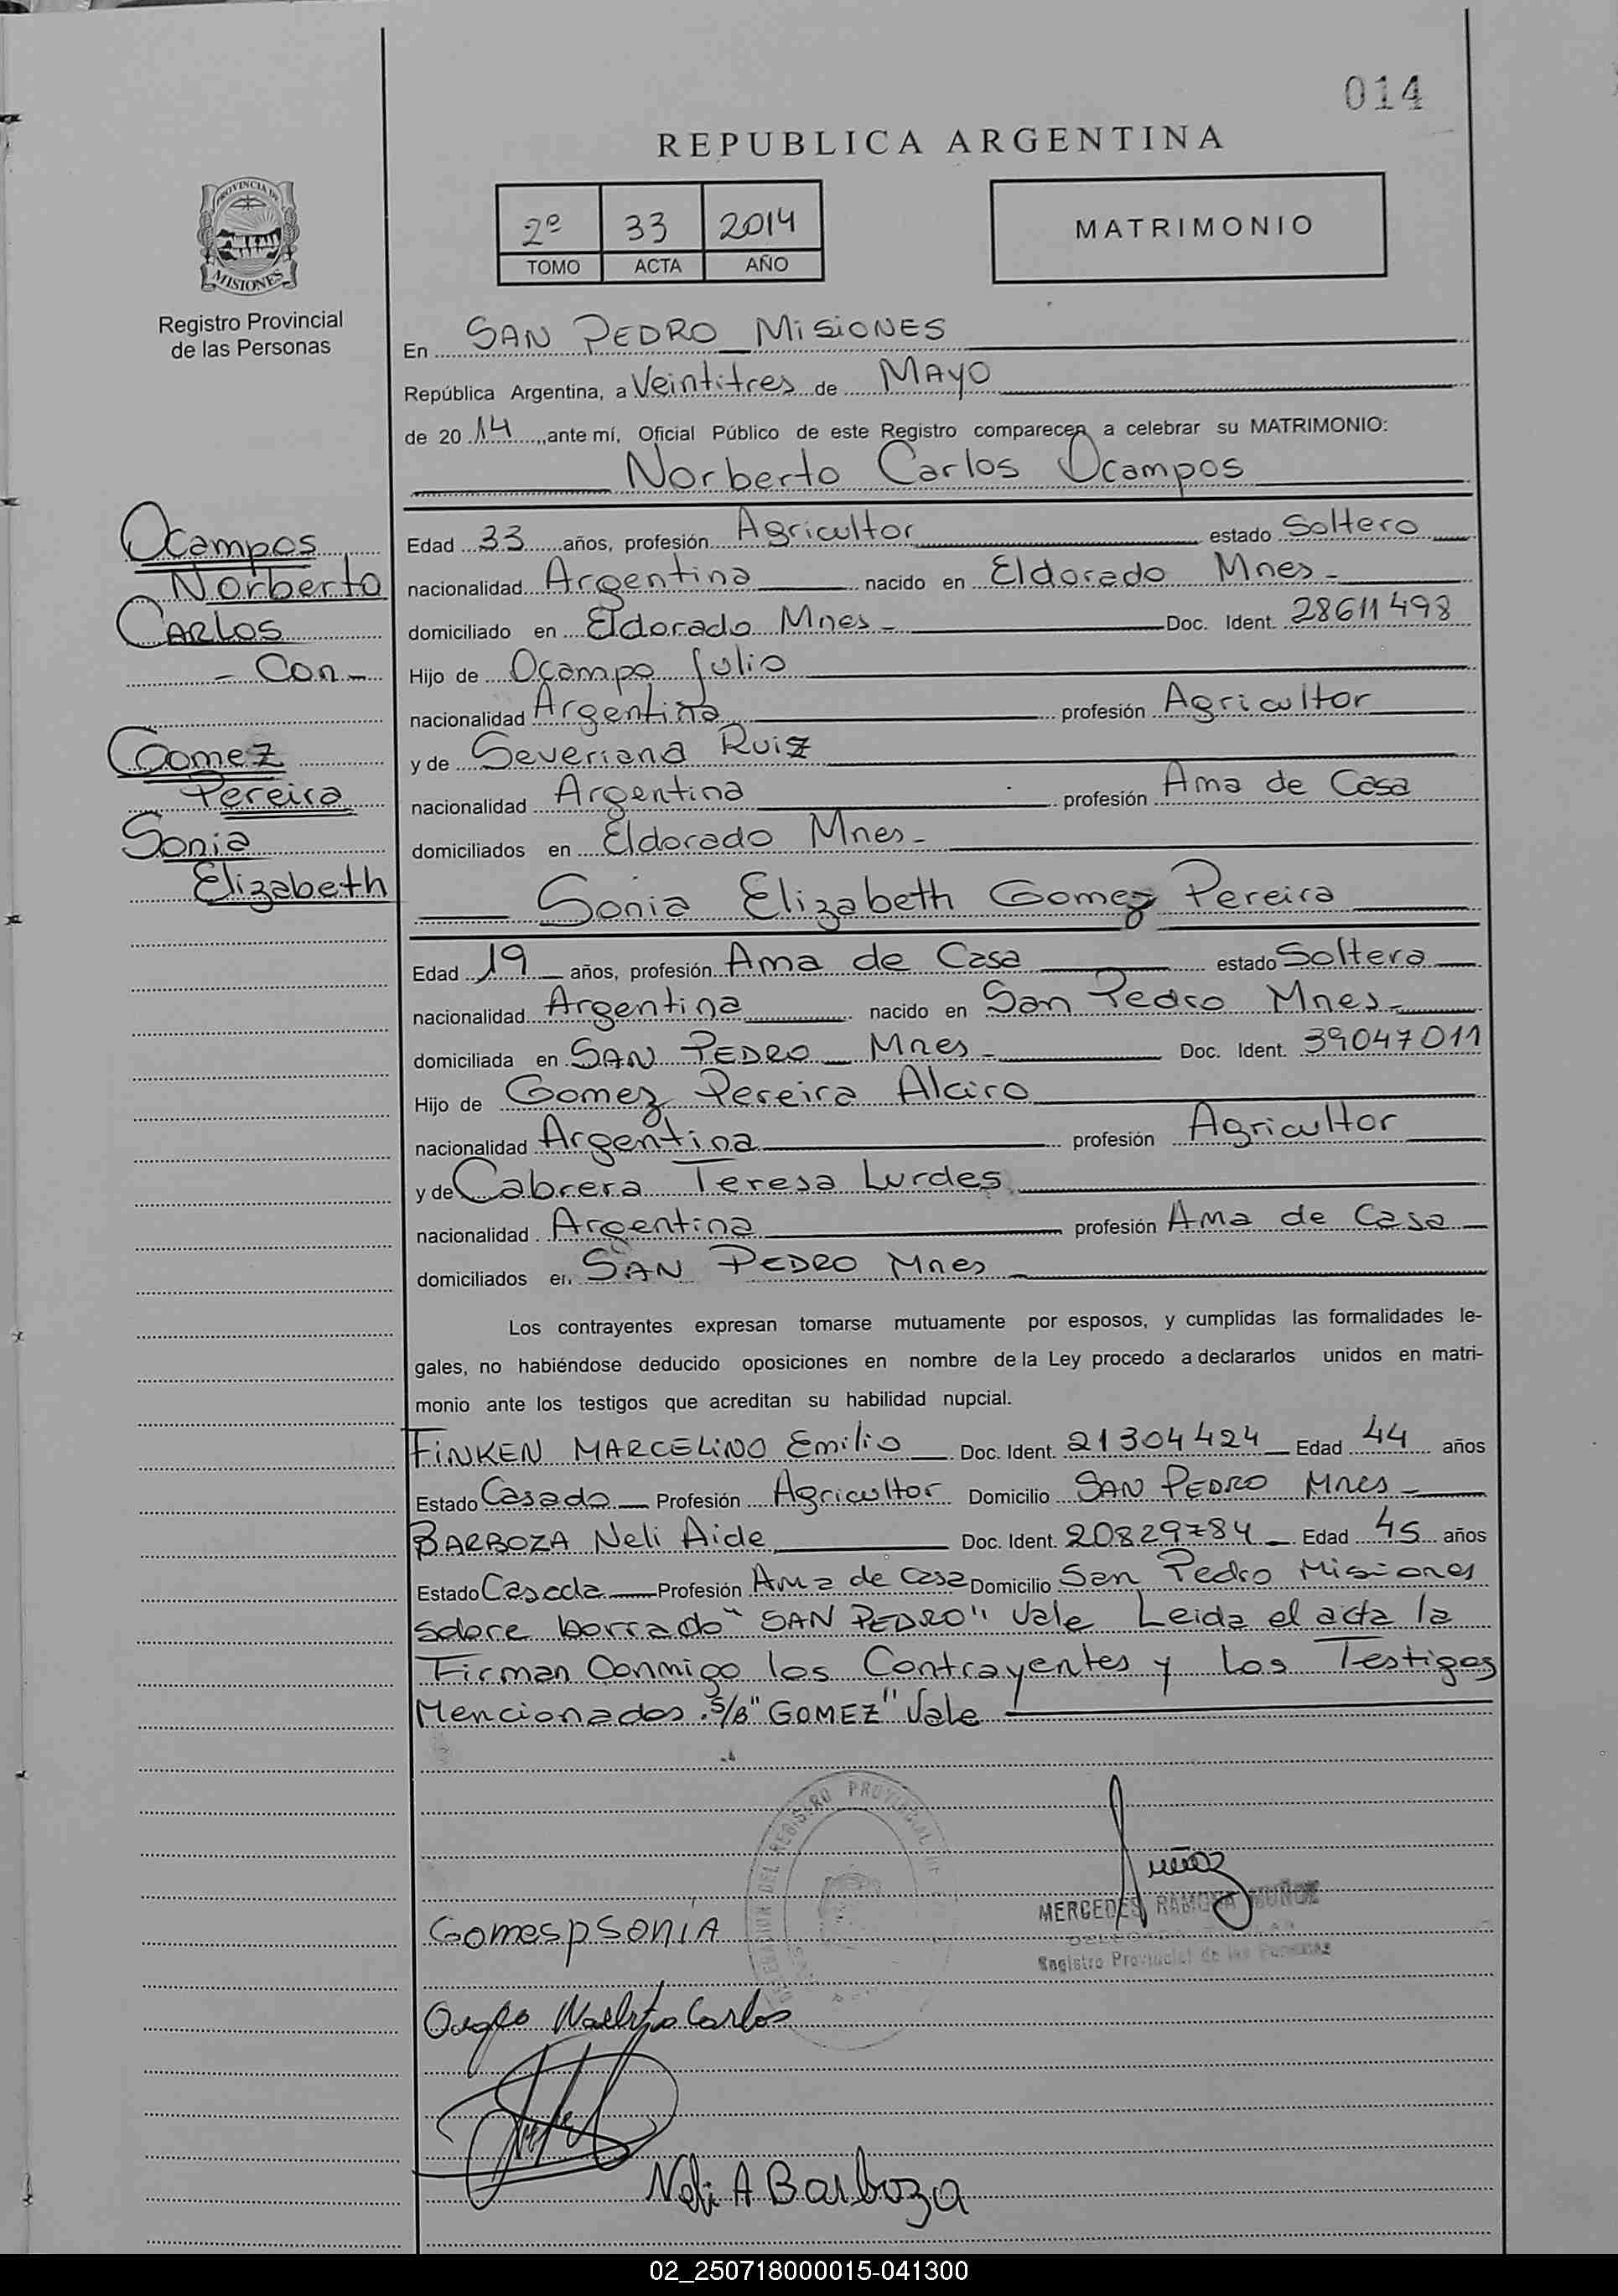 014
REPUBLICA ARGENTINA
PROVINCIA DE
MISIONES
Registro Provincial
de las Personas
2º 33 2014
TOMO ACTA AÑO
MATRIMONIO
En SAN PEDRO MISIONES
República Argentina, a Veintitres de MAYO
de 20 14, ante mí, Oficial Público de este Registro comparecen a celebrar su MATRIMONIO:
Norberto Carlos Ocampos
Ocampos
Norberto
CARLOS
- Con -
Gomez
Pereira
Sonia
Elizabeth
Edad 33 años, profesión Agricultor estado Soltero
nacionalidad Argentina nacido en Eldorado Mnes-
domiciliado en Eldorado Mnes- Doc. Ident. 28611498
Hijo de Ocampo Julio
nacionalidad Argentina profesión Agricultor
y de Severiana Ruiz
nacionalidad Argentina profesión Ama de Casa
domiciliados en Eldorado Mnes-
Sonia Elizabeth Gomez Pereira
Edad 19 años, profesión Ama de Casa estado Soltera
nacionalidad Argentina nacido en San Pedro Mnes-
domiciliada en SAN PEDRO Mnes- Doc. Ident. 39047011
Hijo de Gomez Pereira Alciro
nacionalidad Argentina profesión Agricultor
y de Cabrera Teresa Lurdes
nacionalidad Argentina profesión Ama de Casa
domiciliados en SAN PEDRO Mnes
Los contrayentes expresan tomarse mutuamente por esposos, y cumplidas las formalidades le-
gales, no habiéndose deducido oposiciones en nombre de la Ley procedo a declararlos unidos en matri-
monio ante los testigos que acreditan su habilidad nupcial.
FINKEN MARCELINO Emilio Doc. Ident. 21304424 Edad 44 años
Estado Casado Profesión Agricultor Domicilio SAN PEDRO Mnes-
BARBOZA Neli Aide Doc. Ident. 20829784 Edad 45 años
Estado Casada Profesión Ama de casa Domicilio San Pedro Misiones
sobre borrado "SAN PEDRO" Vale Leida el acta la
Firman Conmigo los Contrayentes y Los Testigos
Mencionados. S/B "GOMEZ" Vale
DEL REGISTRO PROVINCIAL
MERCEDES RAMONA MUÑOZ
Registro Provincial de las Personas
Gomes p SONIA
Carlos
Neli A Barboza
02_250718000015-041300